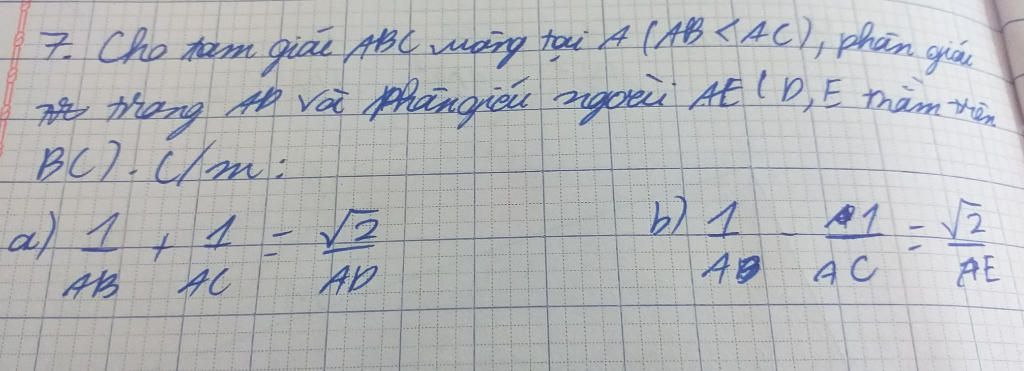 7. Cho tam giác ABC vuông tại A (AB < AC), phân giác
trong AD và phân giác ngoài AE (D, E nằm trên
BC). C/m:
a) 1/AB + 1/AC = √2/AD b) 1/AB - 1/AC = √2/AE